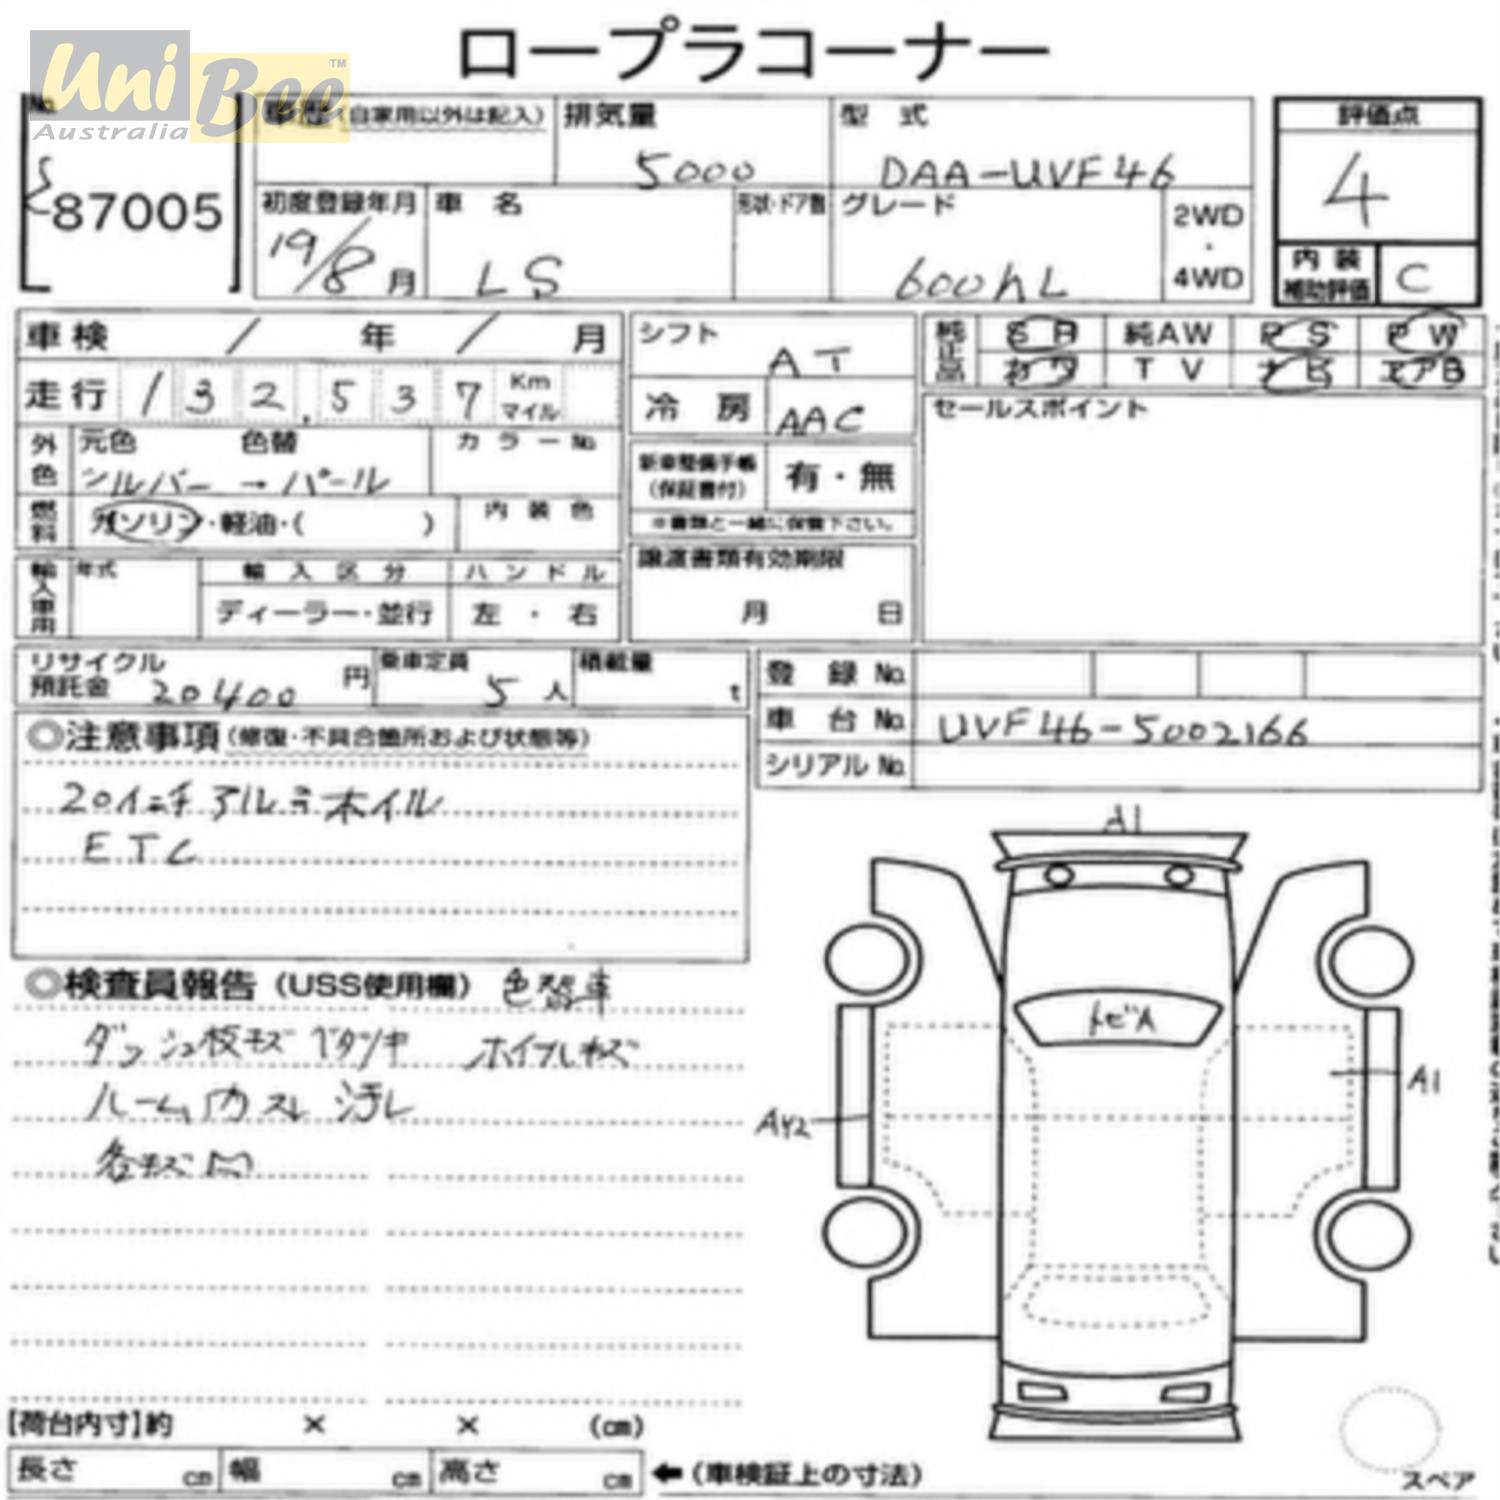 ロープラコーナー
UniBee™
Australia
No.
87005
車歴(自家用以外は記入)
排気量
5000
型 式
DAA-UVF46
評価点
4
初度登録年月
19/8月
車 名
LS
形状・ドア数
グレード
600hL
2WD
・
4WD
内 装
補助評価
C
車検 / 年 / 月
走行 132,537 Km
マイル
シフト
AT
冷 房
AAC
純正品
SR 純AW PS PW
カワ TV ナビ エアB
セールスポイント
外色
元色 色替
シルバー → パール
カ ラ ー No.
燃料
ガソリン・軽油・( )
内 装 色
新車整備手帳
(保証書付)
有・無
※書類と一緒に保管下さい。
輸入車用
年式
輸 入 区 分
ディーラー・並行
ハ ン ド ル
左 ・ 右
譲渡書類有効期限
月 日
リサイクル
預託金 20400 円
乗車定員
5人
積載量
t
登 録 No.
車 台 No. UVF46-5002166
シリアル No.
◎注意事項(修復・不具合箇所および状態等)
20インチアルミホイル
ETC
◎検査員報告(USS使用欄) 色替車
ダッシュ板キズ ベタツキ ホイルキズ
ルーム内スレ汚レ
各キズ凹
A1
トビA
A1
AY2
[荷台内寸]約 × × (cm)
長さ cm 幅 cm 高さ cm
←(車検証上の寸法)
スペア